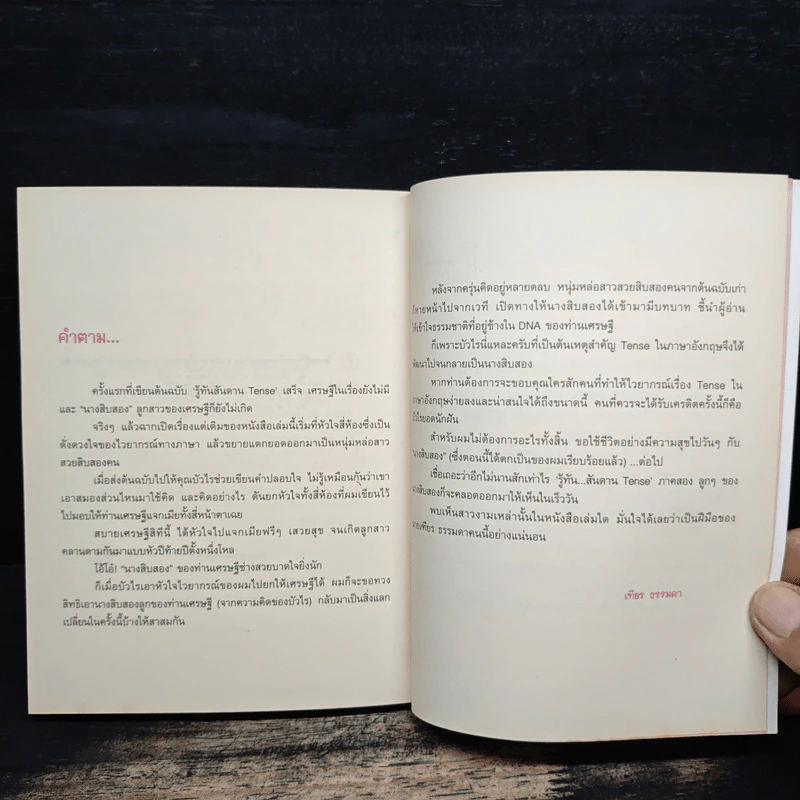 คำตาม...
ครั้งแรกที่เขียนต้นฉบับ ‘รู้ทันสันดาน Tense’ เสร็จ เศรษฐีในเรื่องยังไม่มี
และ “นางสิบสอง” ลูกสาวของเศรษฐีก็ยังไม่เกิด
จริงๆ แล้วฉากเปิดเรื่องแต่เดิมของหนังสือเล่มนี้เริ่มที่หัวใจสี่ห้องซึ่งเป็น
ดั่งดวงใจของไวยากรณ์ทางภาษา แล้วขยายแตกยอดออกมาเป็นหนุ่มหล่อสาว
สวยสิบสองคน
เมื่อส่งต้นฉบับไปให้คุณบัวไรช่วยเขียนคำปลอบใจ ไม่รู้เหมือนกันว่าเขา
เอาสมองส่วนไหนมาใช้คิด และคิดอย่างไร ดันยกหัวใจทั้งสี่ห้องที่ผมเขียนไว้
ไปมอบให้ท่านเศรษฐีแจกเมียทั้งสี่หน้าตาเฉย
สบายเศรษฐีสิทีนี้ ได้หัวใจไปแจกเมียฟรีๆ เสวยสุข จนเกิดลูกสาว
คลานตามกันมาแบบหัวปีท้ายปีตั้งหนึ่งโหล
โอ้โฮ! “นางสิบสอง” ของท่านเศรษฐีช่างสวยบาดใจยิ่งนัก
ก็เมื่อบัวไรเอาหัวใจไวยากรณ์ของผมไปยกให้เศรษฐีได้ ผมก็จะขอทวง
สิทธิเอานางสิบสองลูกของท่านเศรษฐี (จากความคิดของบัวไร) กลับมาเป็นสิ่งแลก
เปลี่ยนในครั้งนี้บ้างให้สาสมกัน
หลังจากครุ่นคิดอยู่หลายตลบ หนุ่มหล่อสาวสวยสิบสองคนจากต้นฉบับเก่า
หายหน้าไปจากเวที เปิดทางให้นางสิบสองได้เข้ามามีบทบาท ชี้นำผู้อ่าน
ให้เข้าใจธรรมชาติที่อยู่ข้างใน DNA ของท่านเศรษฐี
ก็เพราะบัวไรนี่แหละครับที่เป็นต้นเหตุสำคัญ Tense ในภาษาอังกฤษจึงได้
พัฒนาไปจนกลายเป็นนางสิบสอง
หากท่านต้องการจะขอบคุณใครสักคนที่ทำให้ไวยากรณ์เรื่อง Tense ใน
ภาษาอังกฤษง่ายลงและน่าสนใจได้ถึงขนาดนี้ คนที่ควรจะได้รับเครดิตครั้งนี้ก็คือ
บัวไรยอดนักฝัน
สำหรับผมไม่ต้องการอะไรทั้งสิ้น ขอใช้ชีวิตอย่างมีความสุขไปวันๆ กับ
“นางสิบสอง” (ซึ่งตอนนี้ได้ตกเป็นของผมเรียบร้อยแล้ว) ...ต่อไป
เชื่อเถอะว่าอีกไม่นานสักเท่าไร ‘รู้ทัน...สันดาน Tense’ ภาคสอง ลูกๆ ของ
นางสิบสองก็จะคลอดออกมาให้เห็นในเร็ววัน
พบเห็นสาวงามเหล่านั้นในหนังสือเล่มใด มั่นใจได้เลยว่าเป็นฝีมือของ
นายเทียร ธรรมดาคนนี้อย่างแน่นอน
เทียร ธรรมดา